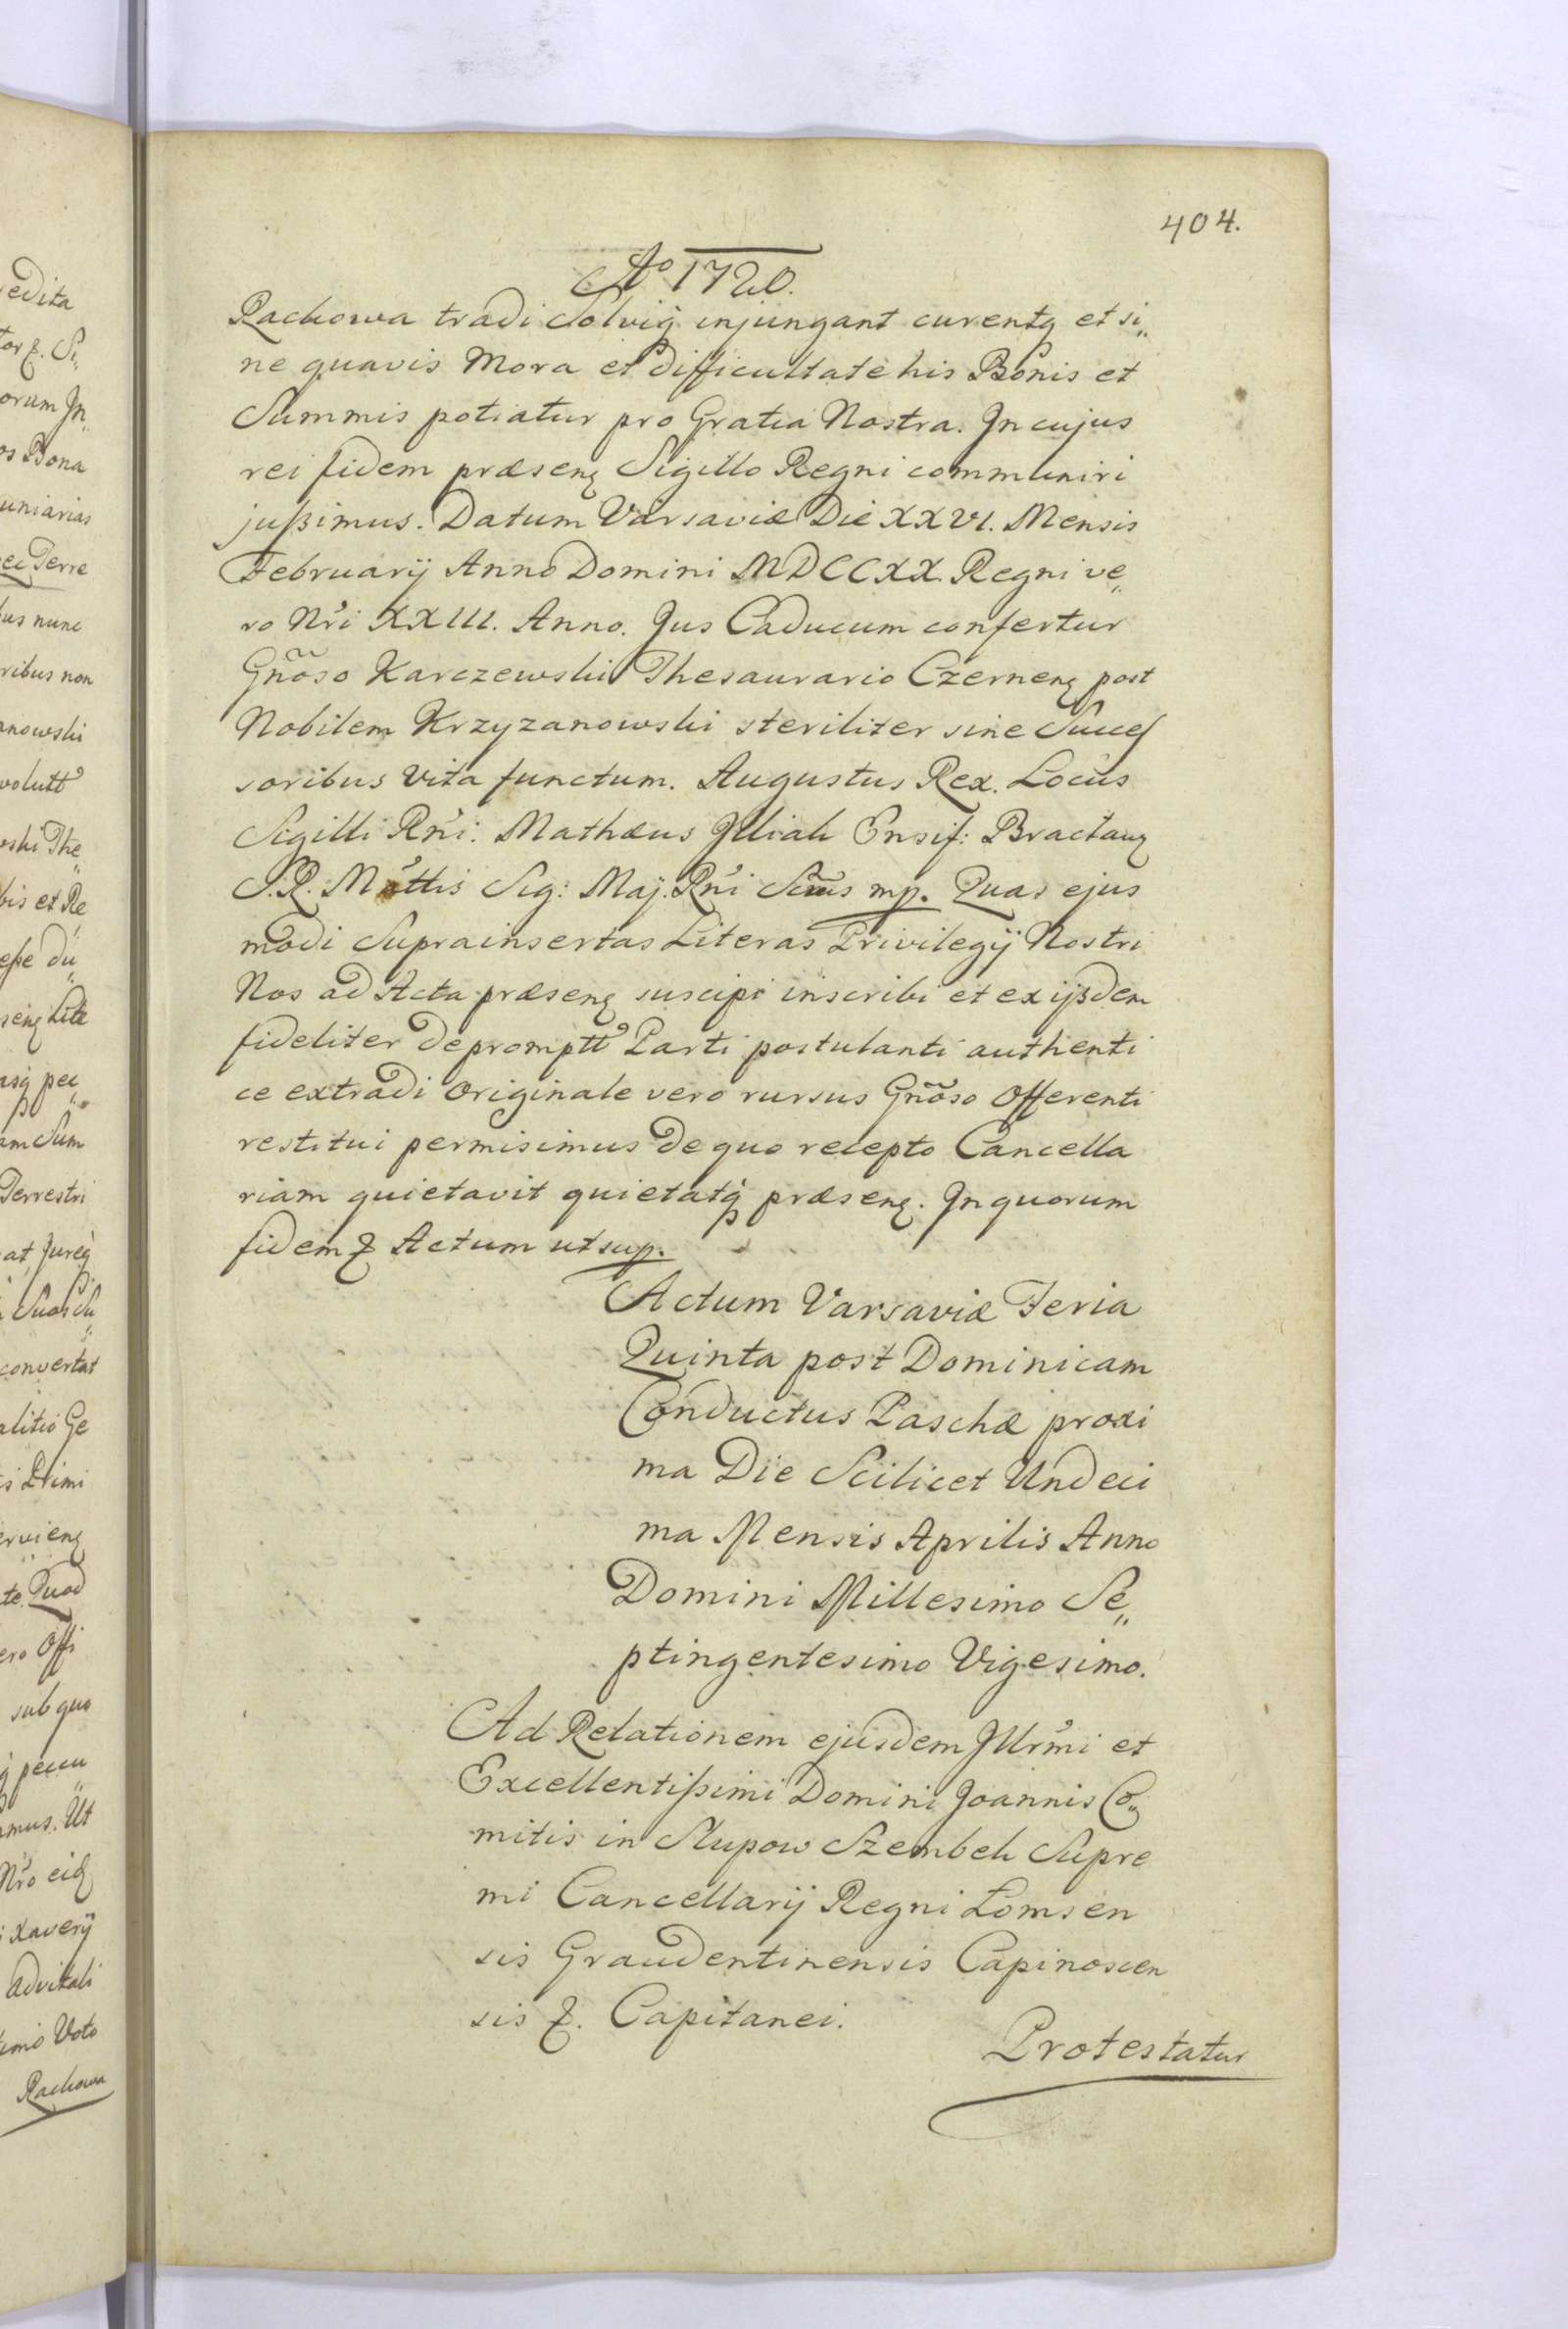 404.
Aº 1720.
Rachowa tradi Solviq; injungant curentq; et si„
ne quavis Mora et difficultate his Bonis et
Summis potiatur pro Gratia Nostra. In cujus
rei fidem præsenę Sigillo Regni communiri
jußimus. Datum Varsaviæ Die XXVI. Mensis
Februarij Anno Domini MDCCXX. Regni ve„
ro Nri XXIII. Anno. Jus Caducum confertur
Gnõso Karczewski Thesaurario Czernenę post
Nobilem Krzyzanowski steriliter sine Succes
soribus vita functum. Augustus Rex. Locus
Sigilli Rni: Mathæus Illiak Ensif: Bractavę
S.R. Mttis Sig: Maj. Rni Scrius mp. Quas ejus
modi Suprainsertas Literas Privilegij Nostri
Nos ad Acta præsenę suscipi inscribi et ex ijsdem
fideliter depromptt Parti postulanti authenti
ce extradi Originale vero rursus Gnõso Offerenti
restitui permisimus de quo recepto Cancella
riam quietavit quietatq; præsenę. In quorum
fidem & Actum ut sup.
Actum Varsaviæ Feria
Quinta post Dominicam
Conductus Paschæ proxi
ma Die Scilicet Undeci
ma Mensis Aprilis Anno
Domini Millesimo Se„
ptingentesimo Vigesimo.
Ad Relationem ejusdem Illrmi et
Excellentißimi Domini Joannis Co„
mitis in Slupow Szembek Supre
mi Cancellarij Regni Lomsen
sis Graudentinensis Capinoscen
sis &. Capitanei.
Protestatur